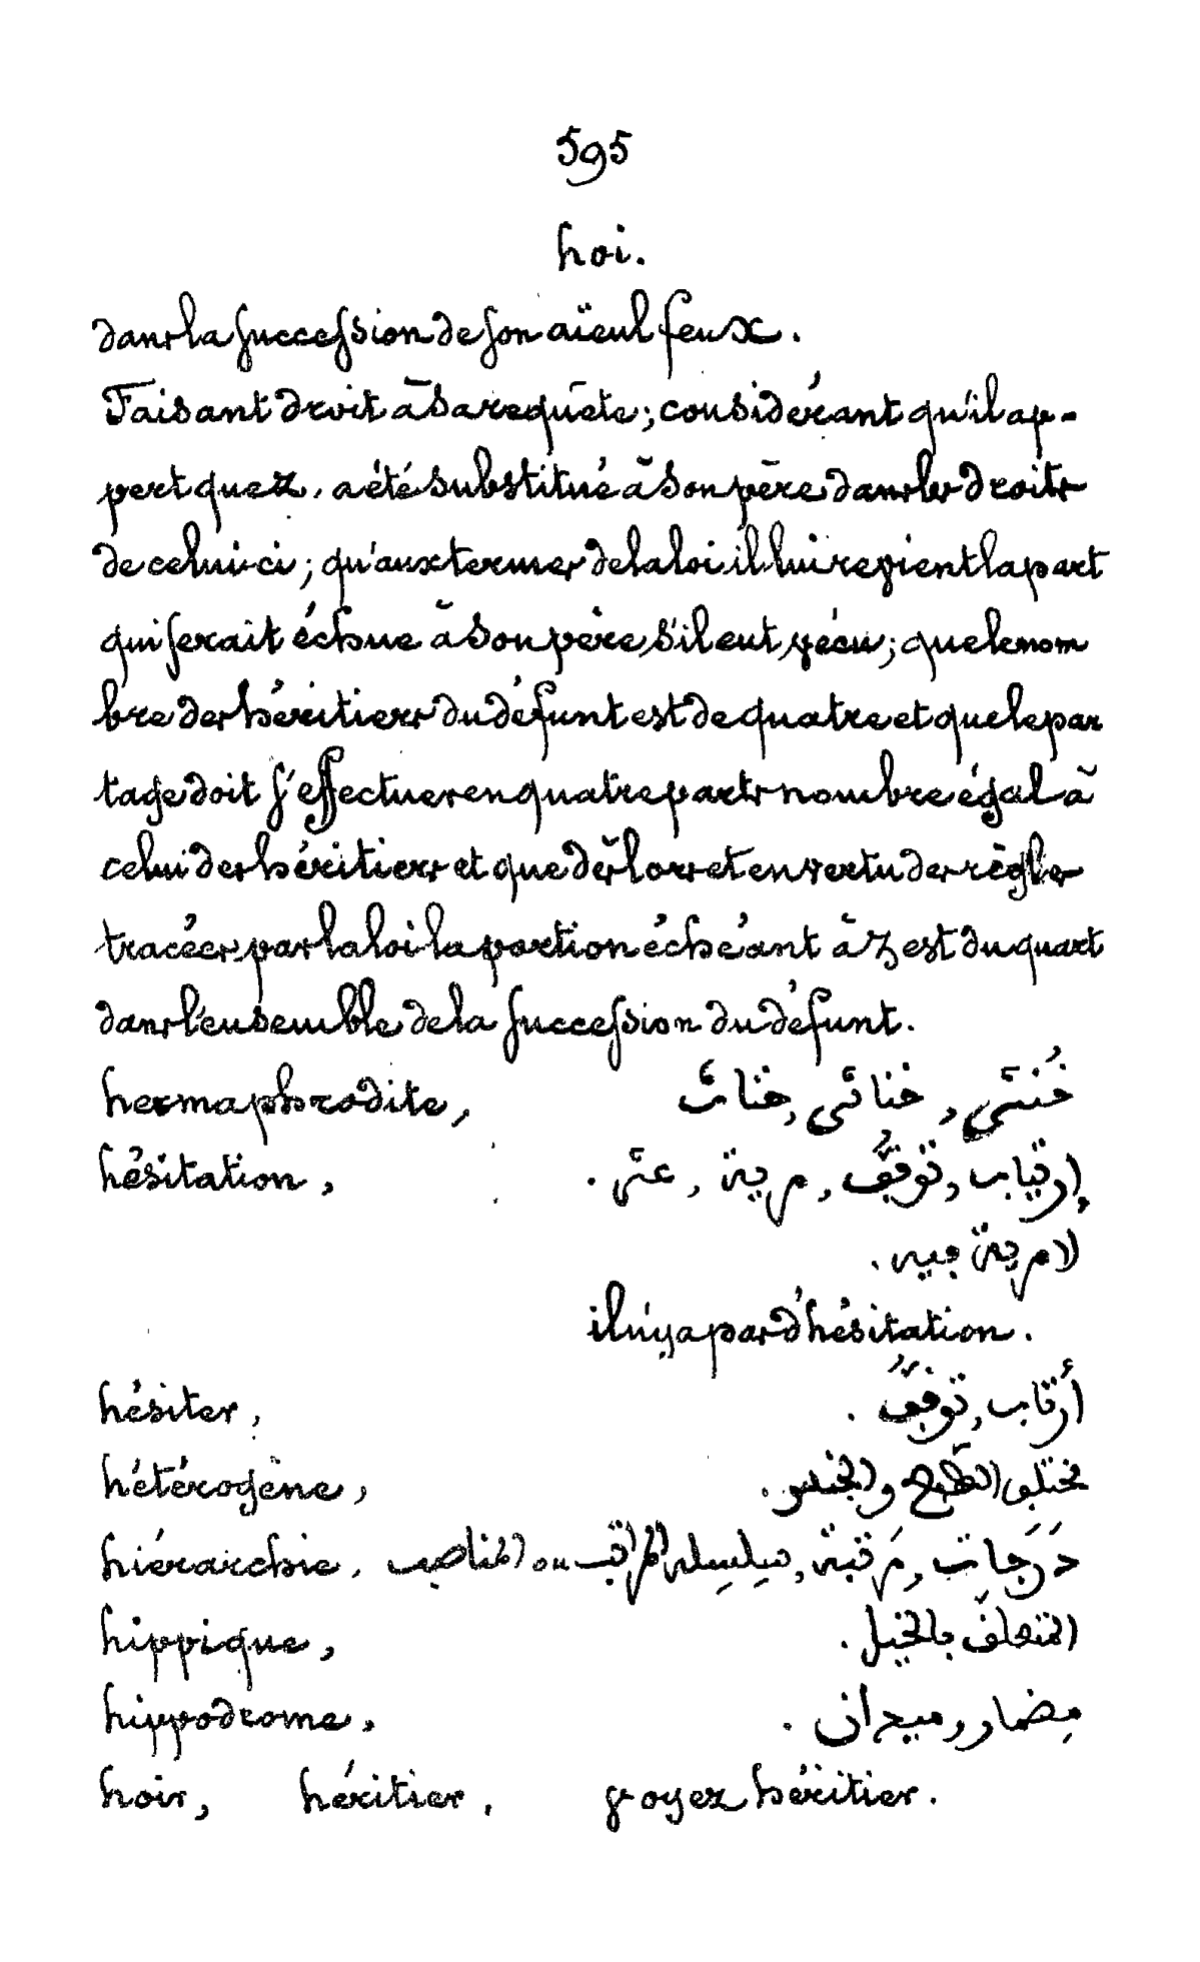 595
hoi.
dans la succession de son aïeul feu X.
Faisant droit à sa requête; considérant qu'il ap-
pert que Z, a été substitué à son père dans les droits
de celui-ci; qu'aux termes de la loi il lui revient la part
qui serait échue à son père, s'il eut vécu; que le nom
bre des héritiers du défunt est de quatre et que le par
tage doit s'effectuer en quatre parts nombre égal à
celui des héritiers et que dès lors et en vertu des règles
tracées par la loi la portion échéant à Z est du quart
dans l'ensemble de la succession du défunt.
hermaphrodite, خُنْثَى, خناثى, خناث
hésitation, إرتياب, توقّف, مرية, .
لا مرية فيه.
il n'y a pas d'hésitation.
hésiter, أرتاب, توقّف.
hétérogène, مختلف الطبع والجنس.
hiérarchie, دَرَجات, مَرتبة, سِلسِلة المراتب ou المناصب
hippique, المتعلّق بالخيل.
hippodrome, مِضمار, ميدان.
hoir, héritier, voyez héritier.